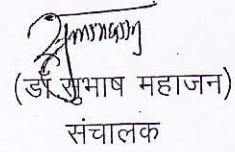 (डॉ सुभाष महाजन)
संचालक